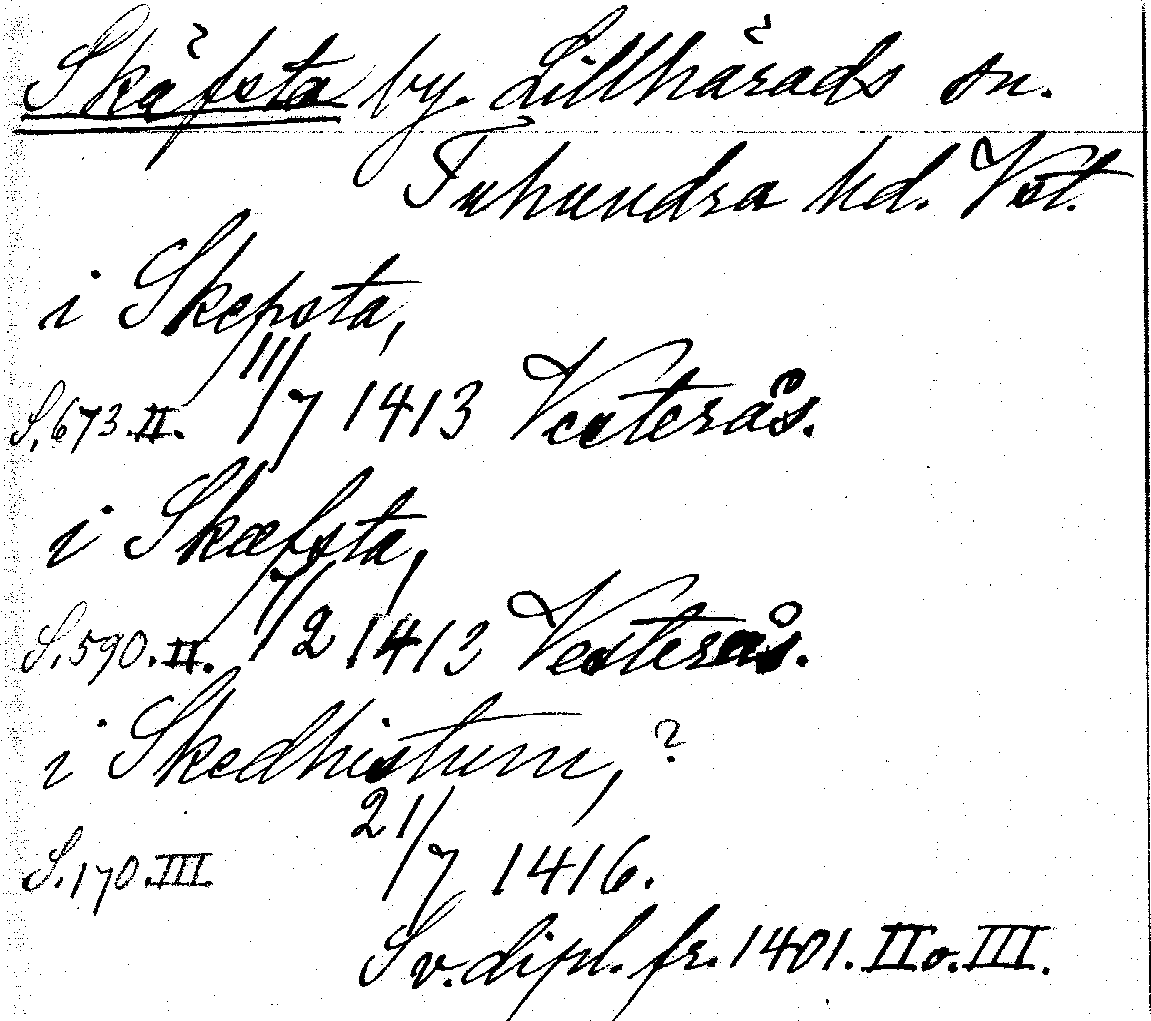 Skäfsta by. Lillhärads sn.
Tuhundra hd. Vstl.
i Skepsta,
S. 673. II. 11/7 1413 Vesterås.
i Skæfsta,
S. 590. II. 7/2 1413 Vesterås.
i Skedhistum, ?
S. 170. III 21/7 1416.
Sv. dipl. fr. 1401. II o. III.